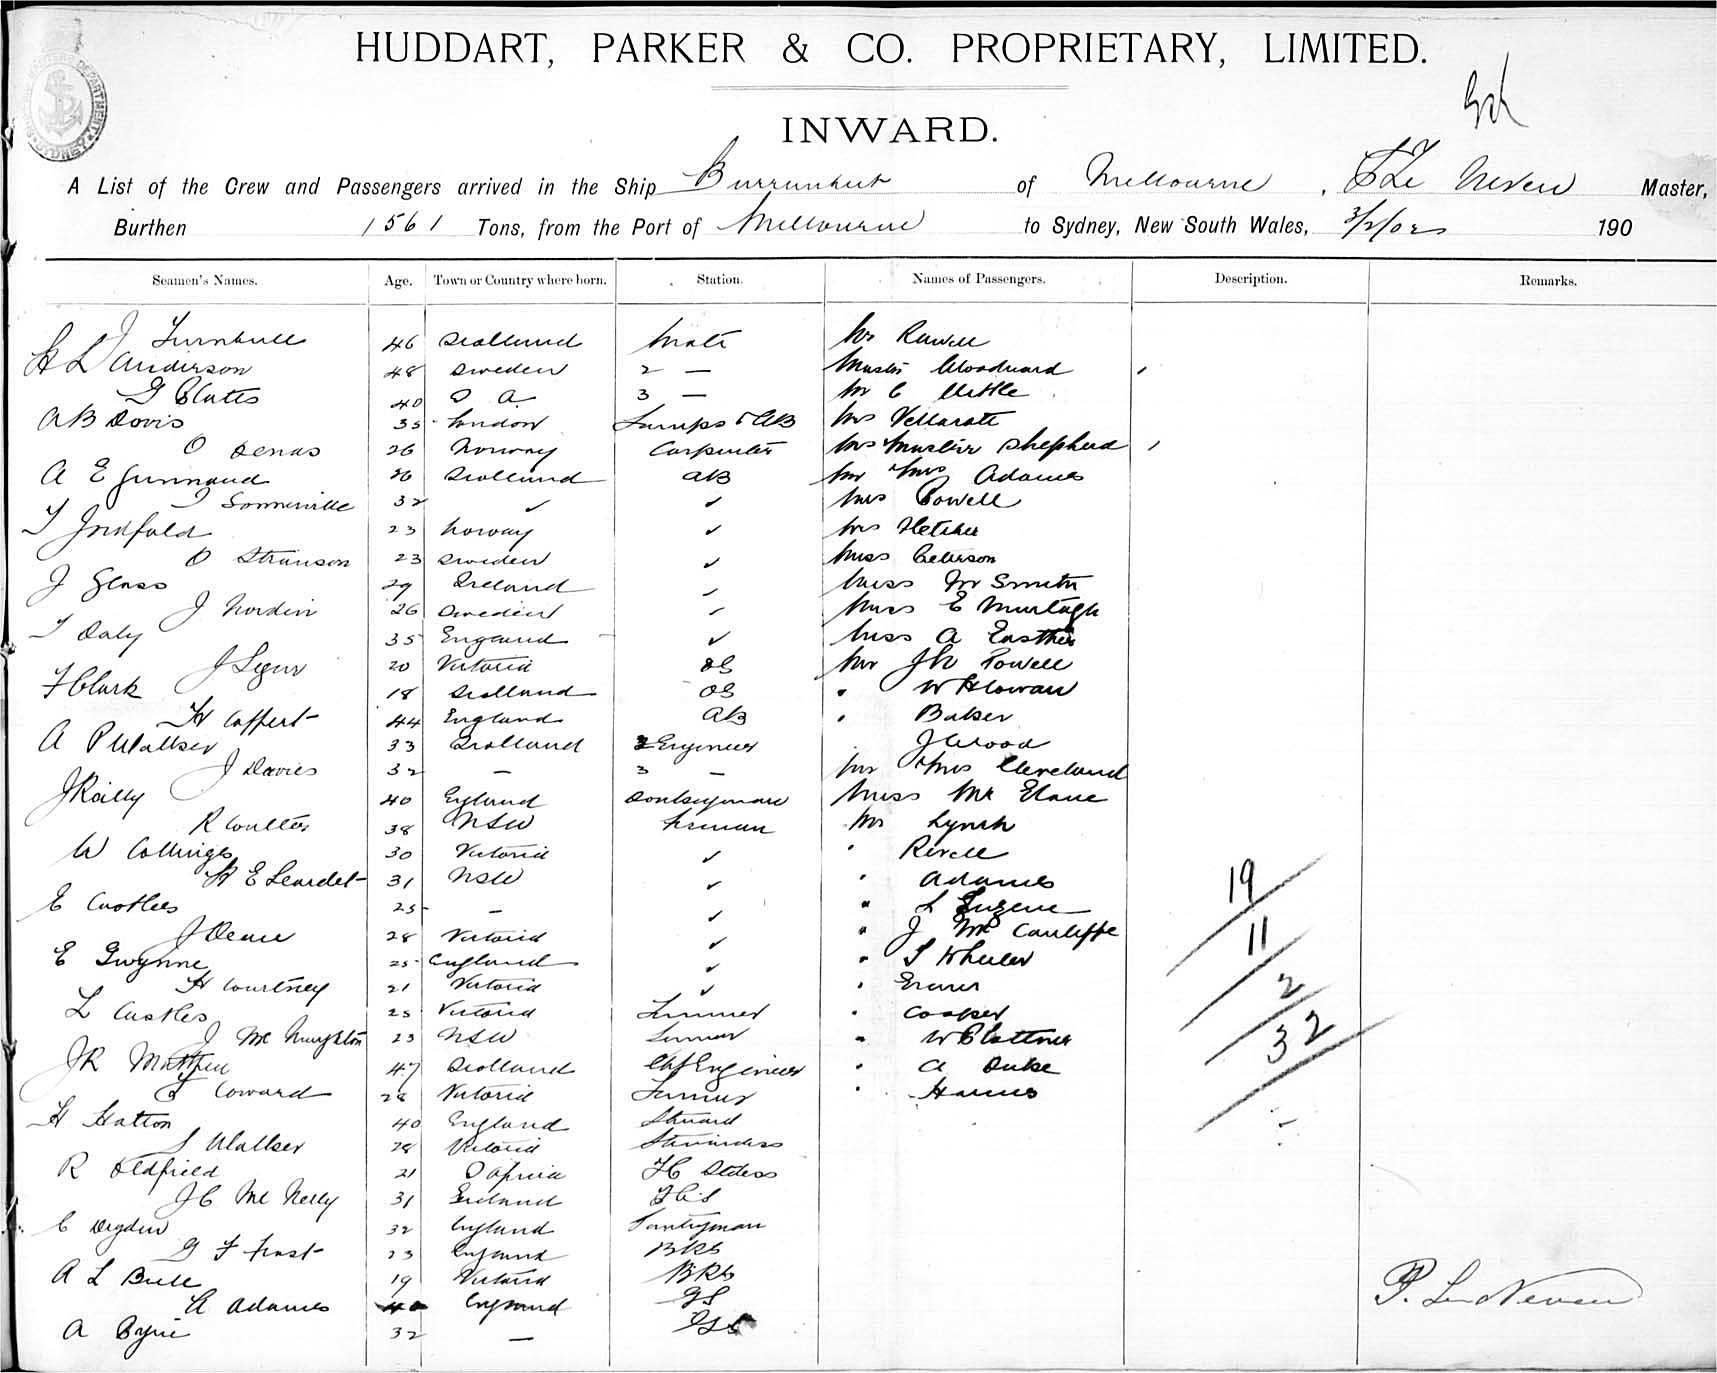 HUDDART, PARKER & CO. PROPRIETARY, LIMITED.
INWARD.
A List of the Crew and Passengers arrived in the Ship Burrumbeet of Melbourne, Le Neven Master,
Burthen 1561 Tons, from the Port of Melbourne to Sydney, New South Wales, 3/2/02 190
Seamen's Names. Age. Town or Country where born. Station. Names of Passengers. Description. Remarks.
J Turnbull 46 Scotland Mate Mr Rowell
H L Anderson 48 Sweden 2 — Master Woodward
G Clutts 40 S A 3 — Mr C
A B Davis 35 London Lamps & AB Mrs Vellarate
O Denas 26 Norway Carpenter Mrs & Master Shepherd
A E Gunnaud 26 Scotland AB Mr & Mrs Adames
J Sommerville 32 ✓ ✓ Mrs Powell
T 23 Norway ✓ Mrs Fletcher
O Swanson 23 Sweden ✓ Miss Peterson
J Glass 29 Ireland ✓ Miss M Smith
J Nordin 26 Sweden ✓ Miss E Murtagh
T Daly 35 England ✓ Miss A Easther
J 20 Victoria OS Mr J W Powell
F Clark 18 Scotland OS " W H Cowan
H Coffert 44 England AB " Baker
A P Walker 33 Scotland 2 Engineer J Wood
J Davies 32 — 3 — Mr & Mrs Cleveland
J Reilly 40 England Donkeyman Miss Mc Elane
R Coulter 38 NSW Fireman Mr Lynch
W Collings 30 Victoria ✓ " Revell
H E Leardet 31 NSW ✓ " Adames
E Castles 25 — ✓ " L Eugene
J Deane 28 Victoria ✓ " J Mc Cauliffe
E Gwynne 25 England ✓ " S Wheeler
H Courtney 21 Victoria ✓ "
L Castles 25 Victoria Trimmer " Cooper
J Mc Naughton 23 NSW Trimmer " W Plattner
J R Matthew 47 Scotland Chf Engineer " A Duke
Coward 28 Victoria Trimmer " Harris
H Hatton 40 England Steward
S Walker 28 Victoria Stewardess
R Oldfield 21 S Africa F C Stdess
J C Mc Nelly 31 England F C S
C Ogden 32 England Pantryman
G F Frost 23 England BRS
A L Bull 19 Victoria BRS
A Adames 40 England GS
A Byrie 32 —
19
11
2
32
P. Le Neven